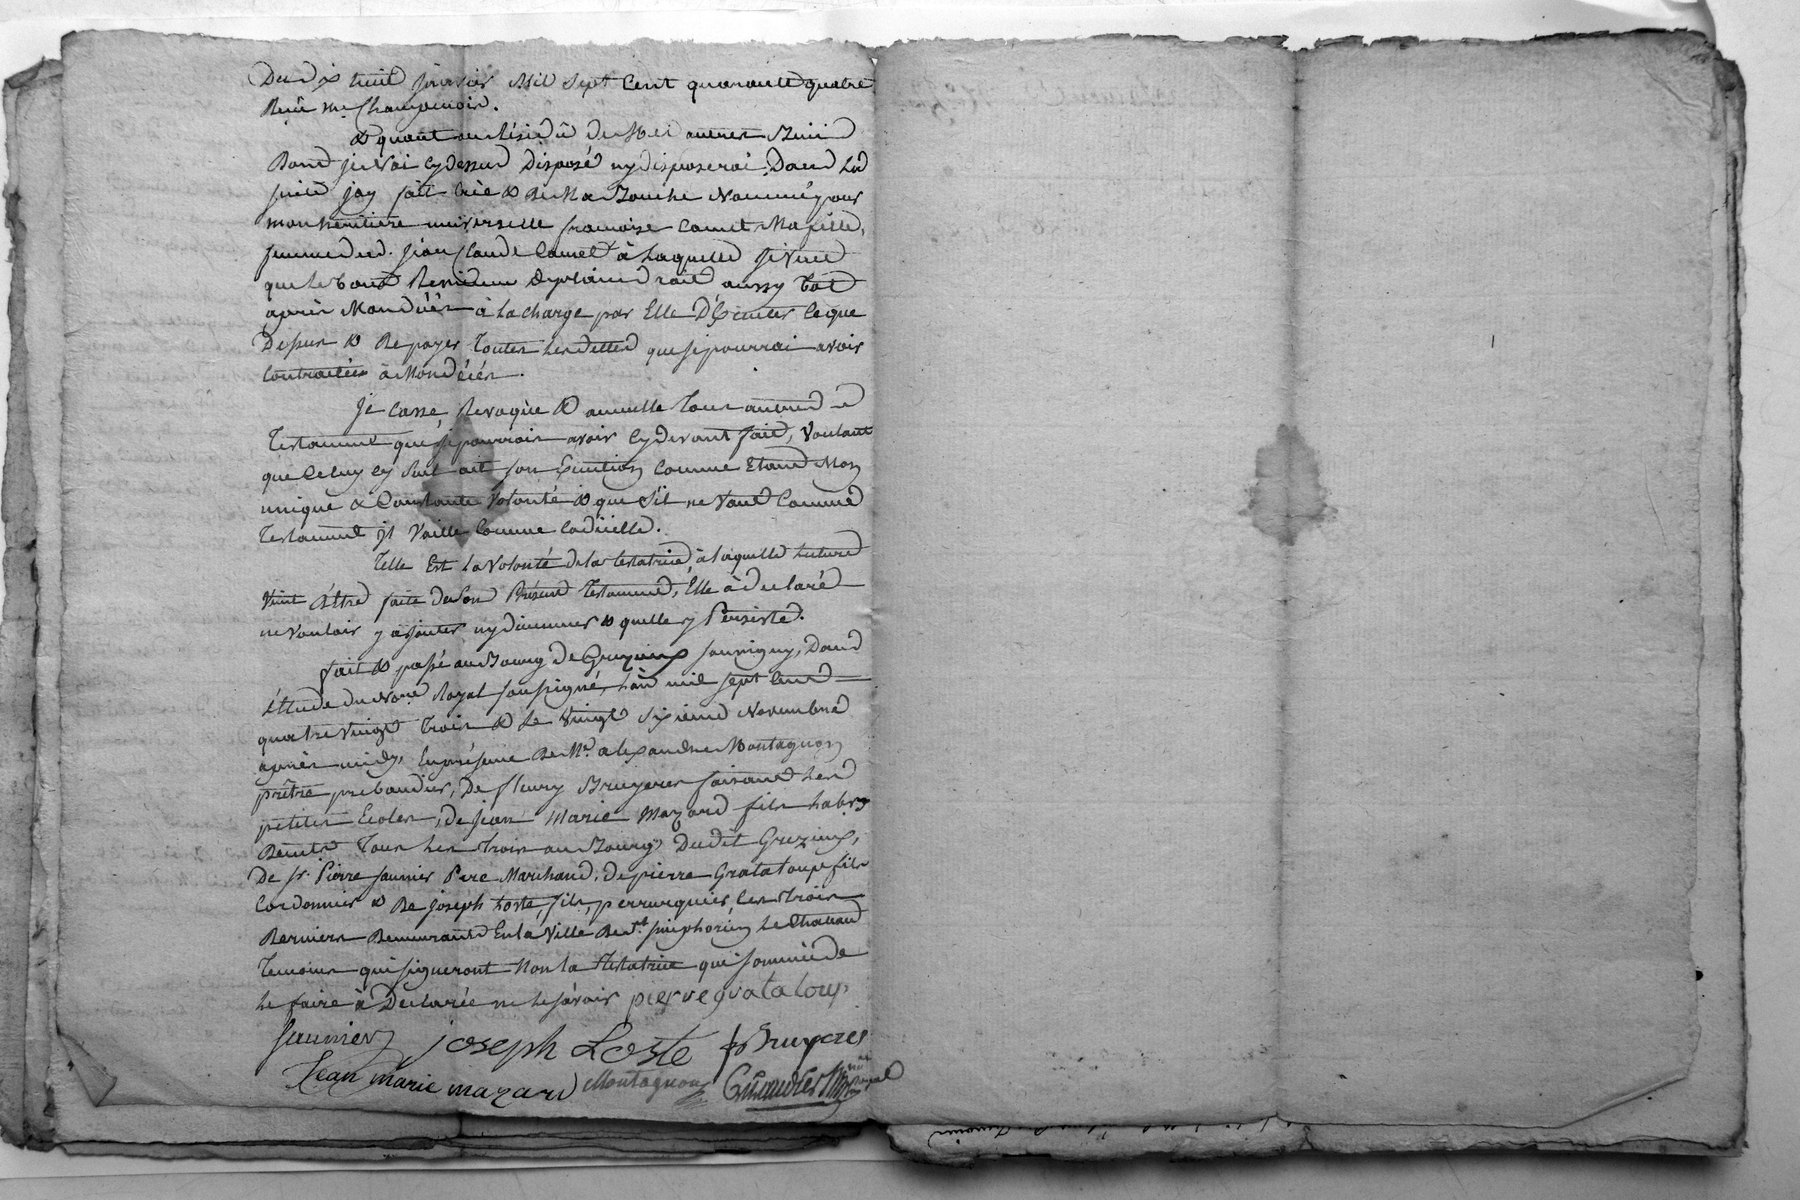 Du dix huit janvier Mil Sept Cent quarante quatre
Reçû me Champenois.
& quant au Résidû de Mes autres Biens
Dont je n'ai cy dessus Disposé ny disposerai. Dans la
suite jay fait crée & De Ma Bouche Nommé pour
mon héritiere universelle francoise Camet Ma fille,
femme dud. jean Claude Camel à Laquelle je veux
que le tout Revienne de plaind roit aussy tôt
après Mon décès à la charge par Elle D'Exécuter Ce que
Dessus & De payer Toutes les dettes que je pourrai avoir
Contractées à Mon décés.
Je Casse, Revoque & annulle Tous autres
Testament que je pourrois avoir cy devant fait, voulant
que Celuy cy Seul ait son Execution Comme Etant Mon
unique & Constante volonté & que s'il ne Vaut Comme
Testament jl Vaille Comme Codicille.
Telle Est la Volonté de la testatrice, à laquelle Lecture
vient d'être faite de Son Présent Testament, Elle à declaré
ne vouloir y ajouter ny diminuer & quelle y Persiste.
fait & passé au Bourg De Grezieux Souvigny, Dans
l'étude du Nore Royal soussigné, l'an mil sept Cent
quatre Vingt Trois & Le Vingt Sixieme Novembre
après midy, En présence De Mre alexandre Montagnon
prêtre prebandier, De fleury Bruyeres faisant les
petites Ecoles, De jean Marie Mazard fils
Tous les trois au Bourg Dudit Grezieux,
De sr. Pierre Saunier Pere Marchand, De pierre Grataloup fils
Cordonnier & De joseph Loste, fils, perruquier, les trois
Derniers Demeurants En la Ville De st. simphorien le Chateau
Temoins qui signeront Non la Testatrice qui sommée de
le faire à Declarée ne le sçavoir pierre grataloup
Saunier joseph Loste f Bruyeres
Jean marie mazard Montagnon